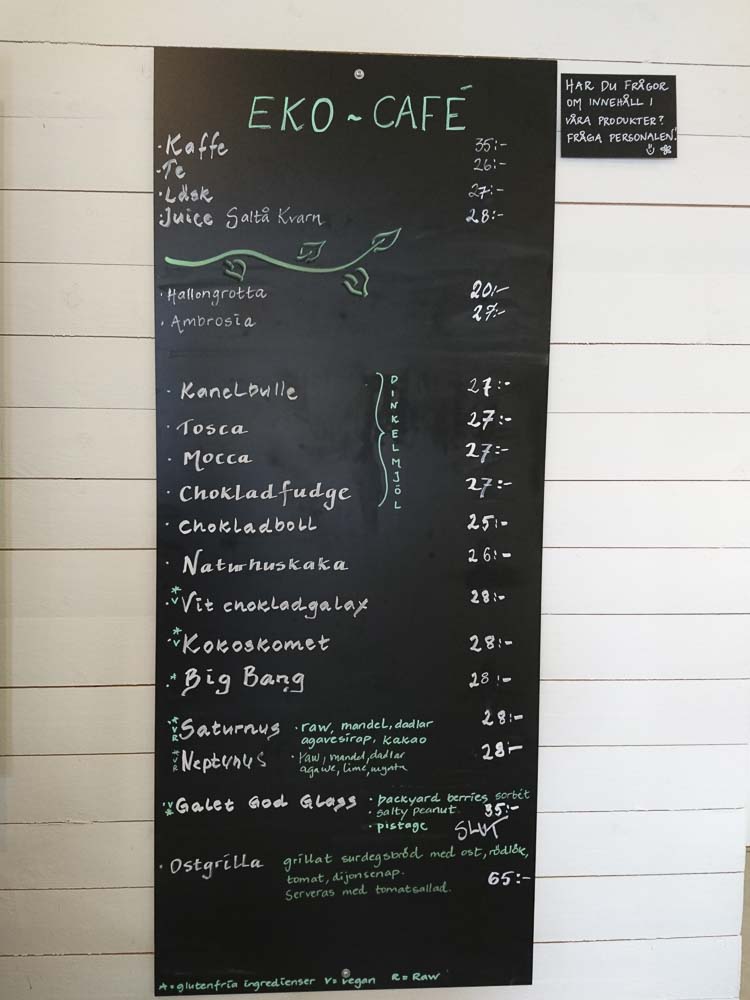 EKO ~ CAFÉ
· Kaffe 35:-
· Te 26:-
· Läsk 27:-
· Juice Saltå Kvarn 28:-
· Hallongrotta 20:-
· Ambrosia 27:-
· Kanelbulle 27:-
· Tosca 27:-
· Mocca 27:-
· Chokladfudge 27:-
DINKELMJÖL
· Chokladboll 25:-
· Naturhuskaka 26:-
· * V Vit chokladgalax 28:-
· * V Kokoskomet 28:-
· * Big Bang 28:-
· * V R Saturnus · raw, mandel, dadlar 28:-
agavesirap, kakao
· * V R Neptunus · Raw, mandel, dadlar 28:-
agave, lime, mynta
· V * Galet God Glass · backyard berries sorbét
· salty peanut 35:-
· pistage SLUT
· Ostgrilla grillat surdegsbröd med ost, rödlök,
tomat, dijonsenap. 65:-
Serveras med tomatsallad.
* = glutenfria ingredienser V = vegan R = Raw
HAR DU FRÅGOR
OM INNEHÅLL I
VÅRA PRODUKTER?
FRÅGA PERSONALEN!